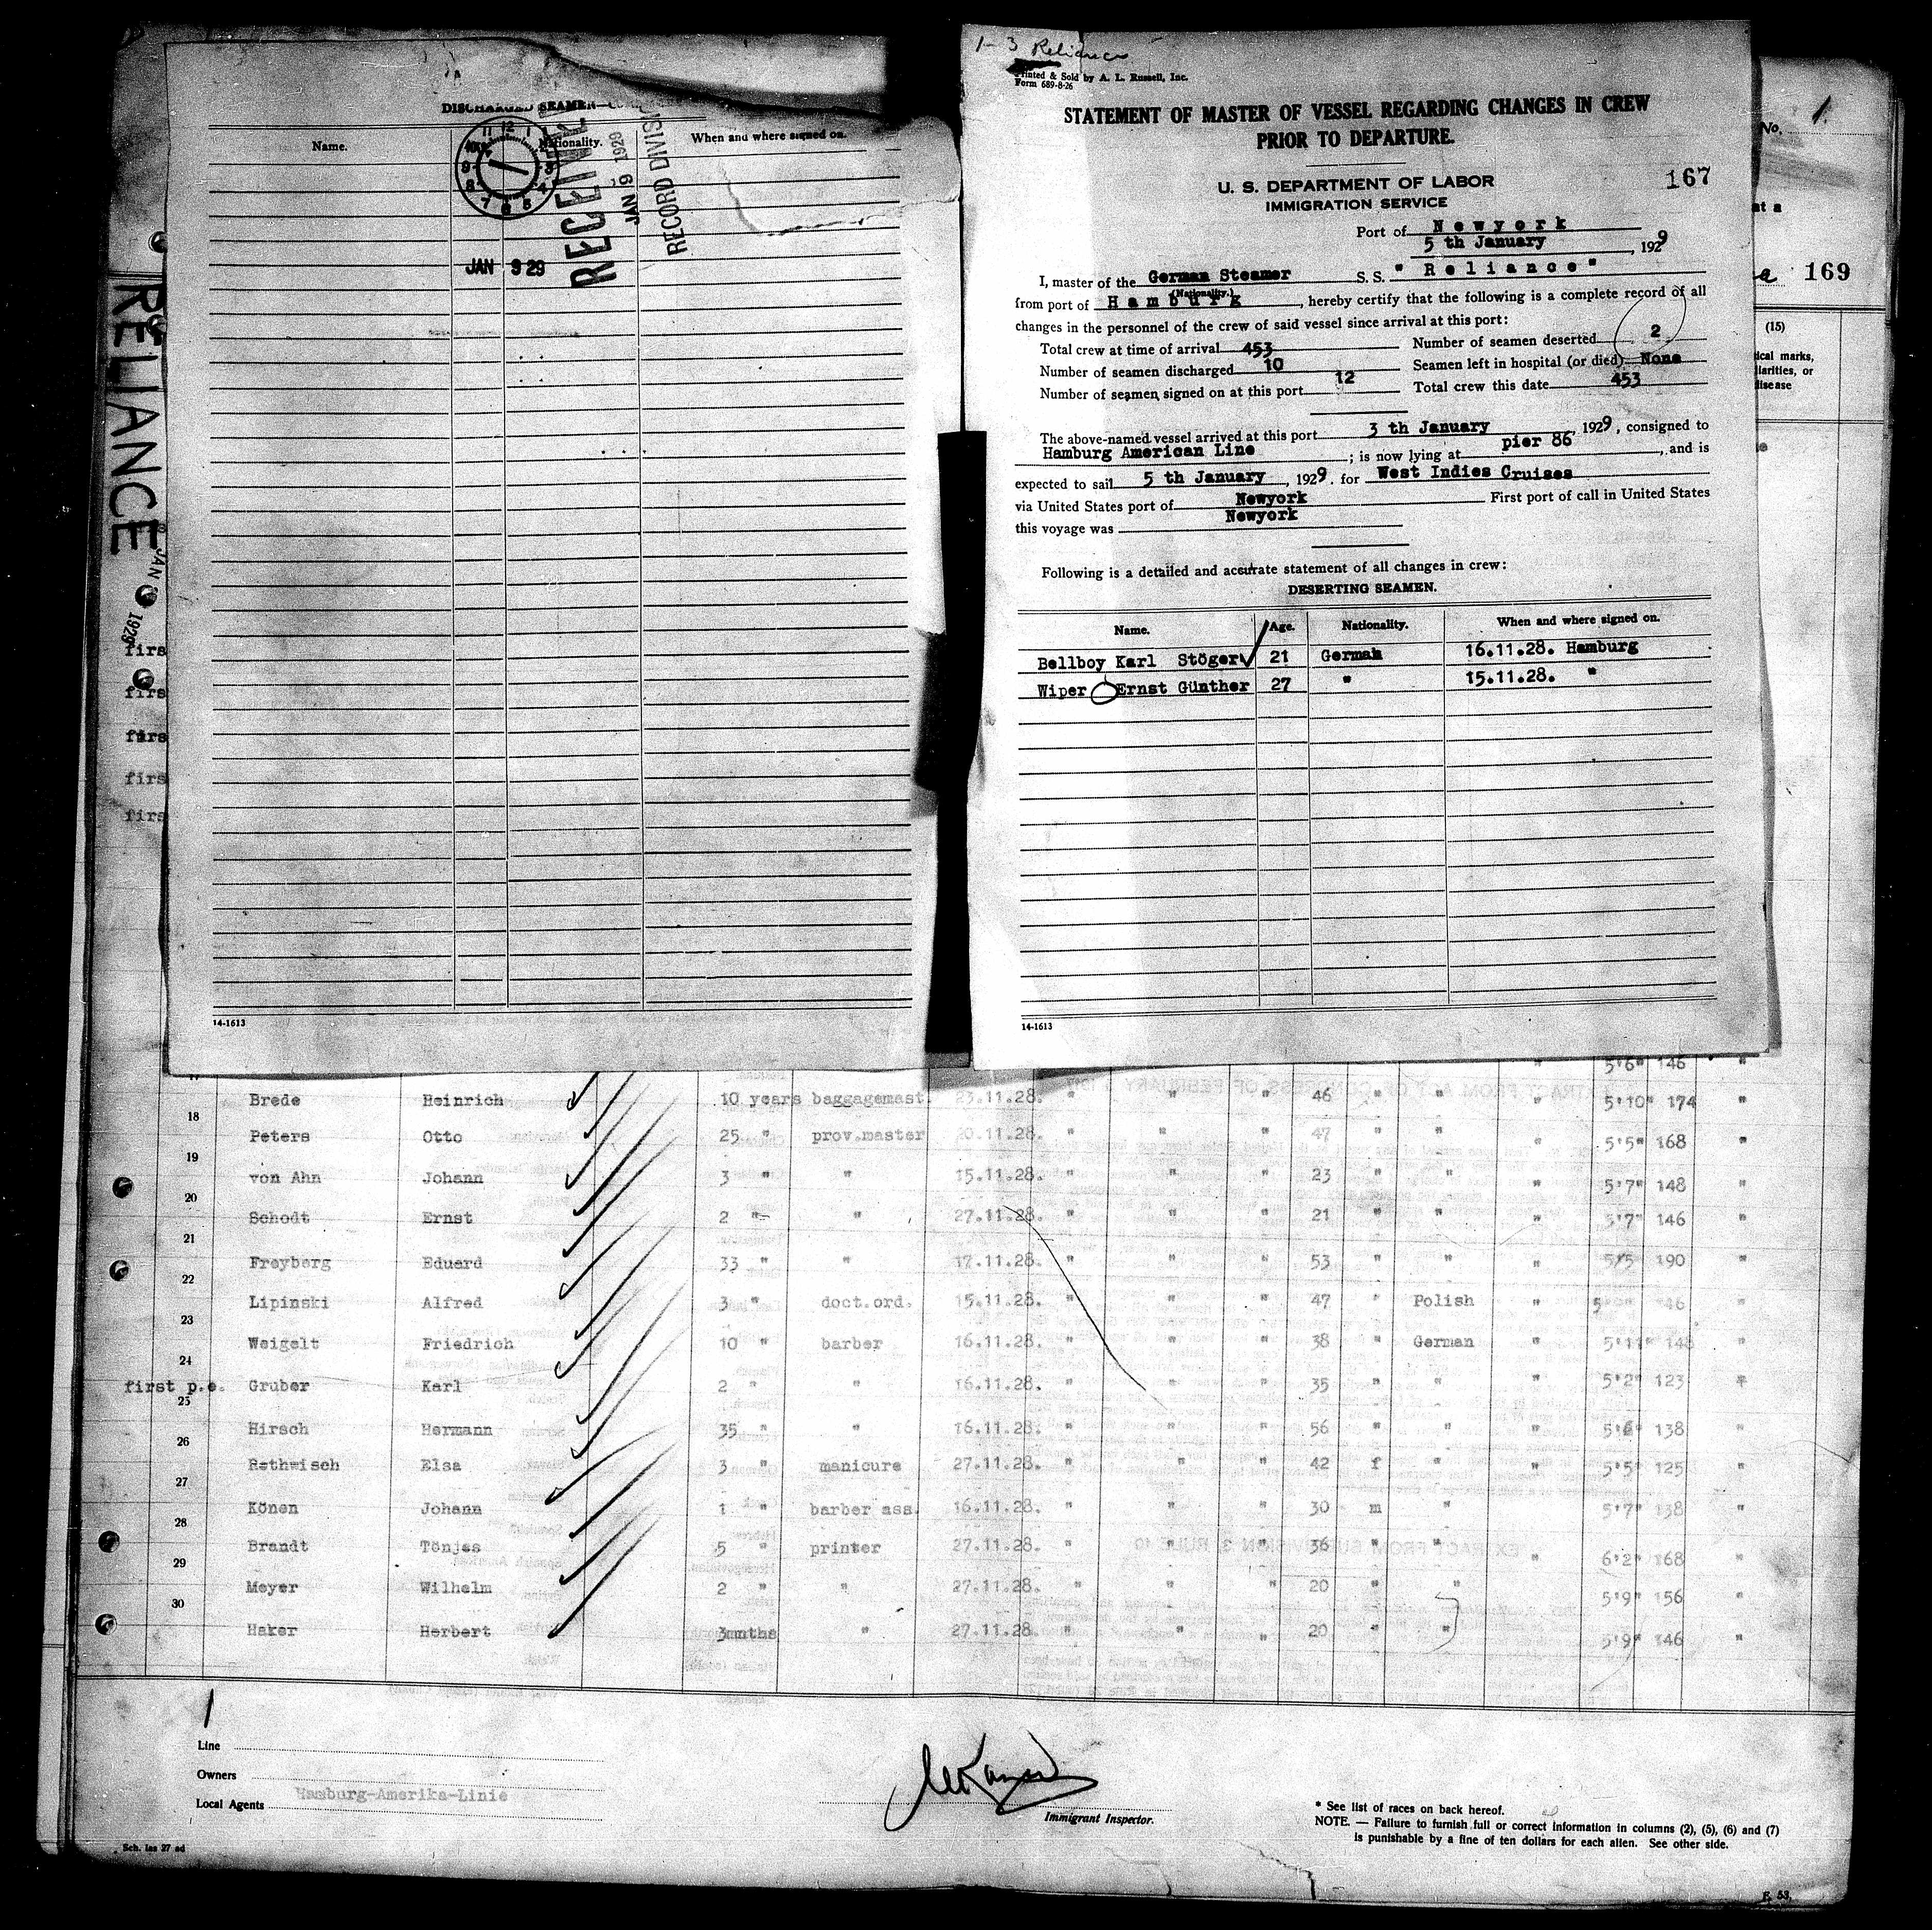 DISCHARGED SEAMEN
Name.
Nationality.
When and where signed on.
RECEIVED
JAN 9 1929
RECORD DIVIS
JAN 9 29
14-1613
RELIANCE
JAN
1929
firs
firs
firs
firs
firs
1-3 Reliance
Printed & Sold by A. L. Russell, Inc.
Form 689-8-26
STATEMENT OF MASTER OF VESSEL REGARDING CHANGES IN CREW
PRIOR TO DEPARTURE.
U. S. DEPARTMENT OF LABOR
IMMIGRATION SERVICE
167
Port of Newyork
5 th January, 1929
I, master of the German Steamer S.S. "Reliance"
(Nationality.)
from port of Hamburg, hereby certify that the following is a complete record of all
changes in the personnel of the crew of said vessel since arrival at this port:
Total crew at time of arrival 453 Number of seamen deserted 2
Number of seamen discharged 10 Seamen left in hospital (or died) None
Number of seamen signed on at this port 12 Total crew this date 453
The above-named vessel arrived at this port 3 th January, 1929, consigned to
Hamburg American Line; is now lying at pier 86, and is
expected to sail 5 th January, 1929. for West Indies Cruises
via United States port of Newyork First port of call in United States
this voyage was Newyork
Following is a detailed and accurate statement of all changes in crew:
DESERTING SEAMEN.
Name. Age. Nationality. When and where signed on.
Bellboy Karl Stöger 21 German 16.11.28. Hamburg
Wiper Ernst Günther 27 " 15.11.28. "
14-1613
No. 1.
at a
169
(15)
ical marks,
liarities, or
disease
5'6" 146 "
18 Brede Heinrich 10 years baggagemast. 23.11.28. " " " 46 " " " 5'10" 174 "
19 Peters Otto 25 " prov.master 0.11.28. " " " 47 " " " 5'5" 168 "
20 von Ahn Johann 3 " " 15.11.28. " " " 23 " " " 5'7" 148 "
21 Schodt Ernst 2 " " 27.11.28. " " " 21 " " " 5'7" 146 "
22 Freyberg Eduard 33 " " 17.11.28. " " " 53 " " " 5'5 190 "
23 Lipinski Alfred 3 " doct.ord. 15.11.28. " " " 47 " Polish " 46 "
24 Weigelt Friedrich 10 " barber 16.11.28. " " " 38 " German " 5'11" 148 "
first p.e. 25 Gruber Karl 2 " " 16.11.28. " " " 35 " " " 5'2" 123 "
26 Hirsch Hermann 35 " " 16.11.28. " " " 56 " " " 5'6" 138 "
27 Rethwisch Elsa 3 " manicure 27.11.28. " " " 42 f " " 5'5" 125 "
28 Könen Johann 1 " barber ass. 16.11.28. " " " 30 m " " 5'7" 138 "
29 Brandt Tönjes 5 " printer 27.11.28. " " " 36 " " " 6'2" 168 "
30 Meyer Wilhelm 2 " " 27.11.28. " " " 20 " " " 5'9" 156 "
Haker Herbert 3 mnths " 27.11.28 " " " 20 " " " 5'9" 146 "
1
Line
Owners
Local Agents Hamburg-Amerika-Linie
Immigrant Inspector.
* See list of races on back hereof.
NOTE. — Failure to furnish full or correct information in columns (2), (5), (6) and (7)
is punishable by a fine of ten dollars for each alien. See other side.
F. 53.